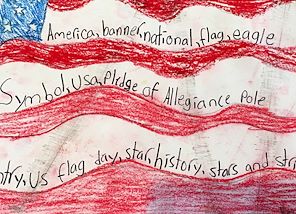 America, banner, national, flag, eagle
Symbol, usa, Pledge of Allegiance Pole
ntry, US flag day, star, history, stars and stri